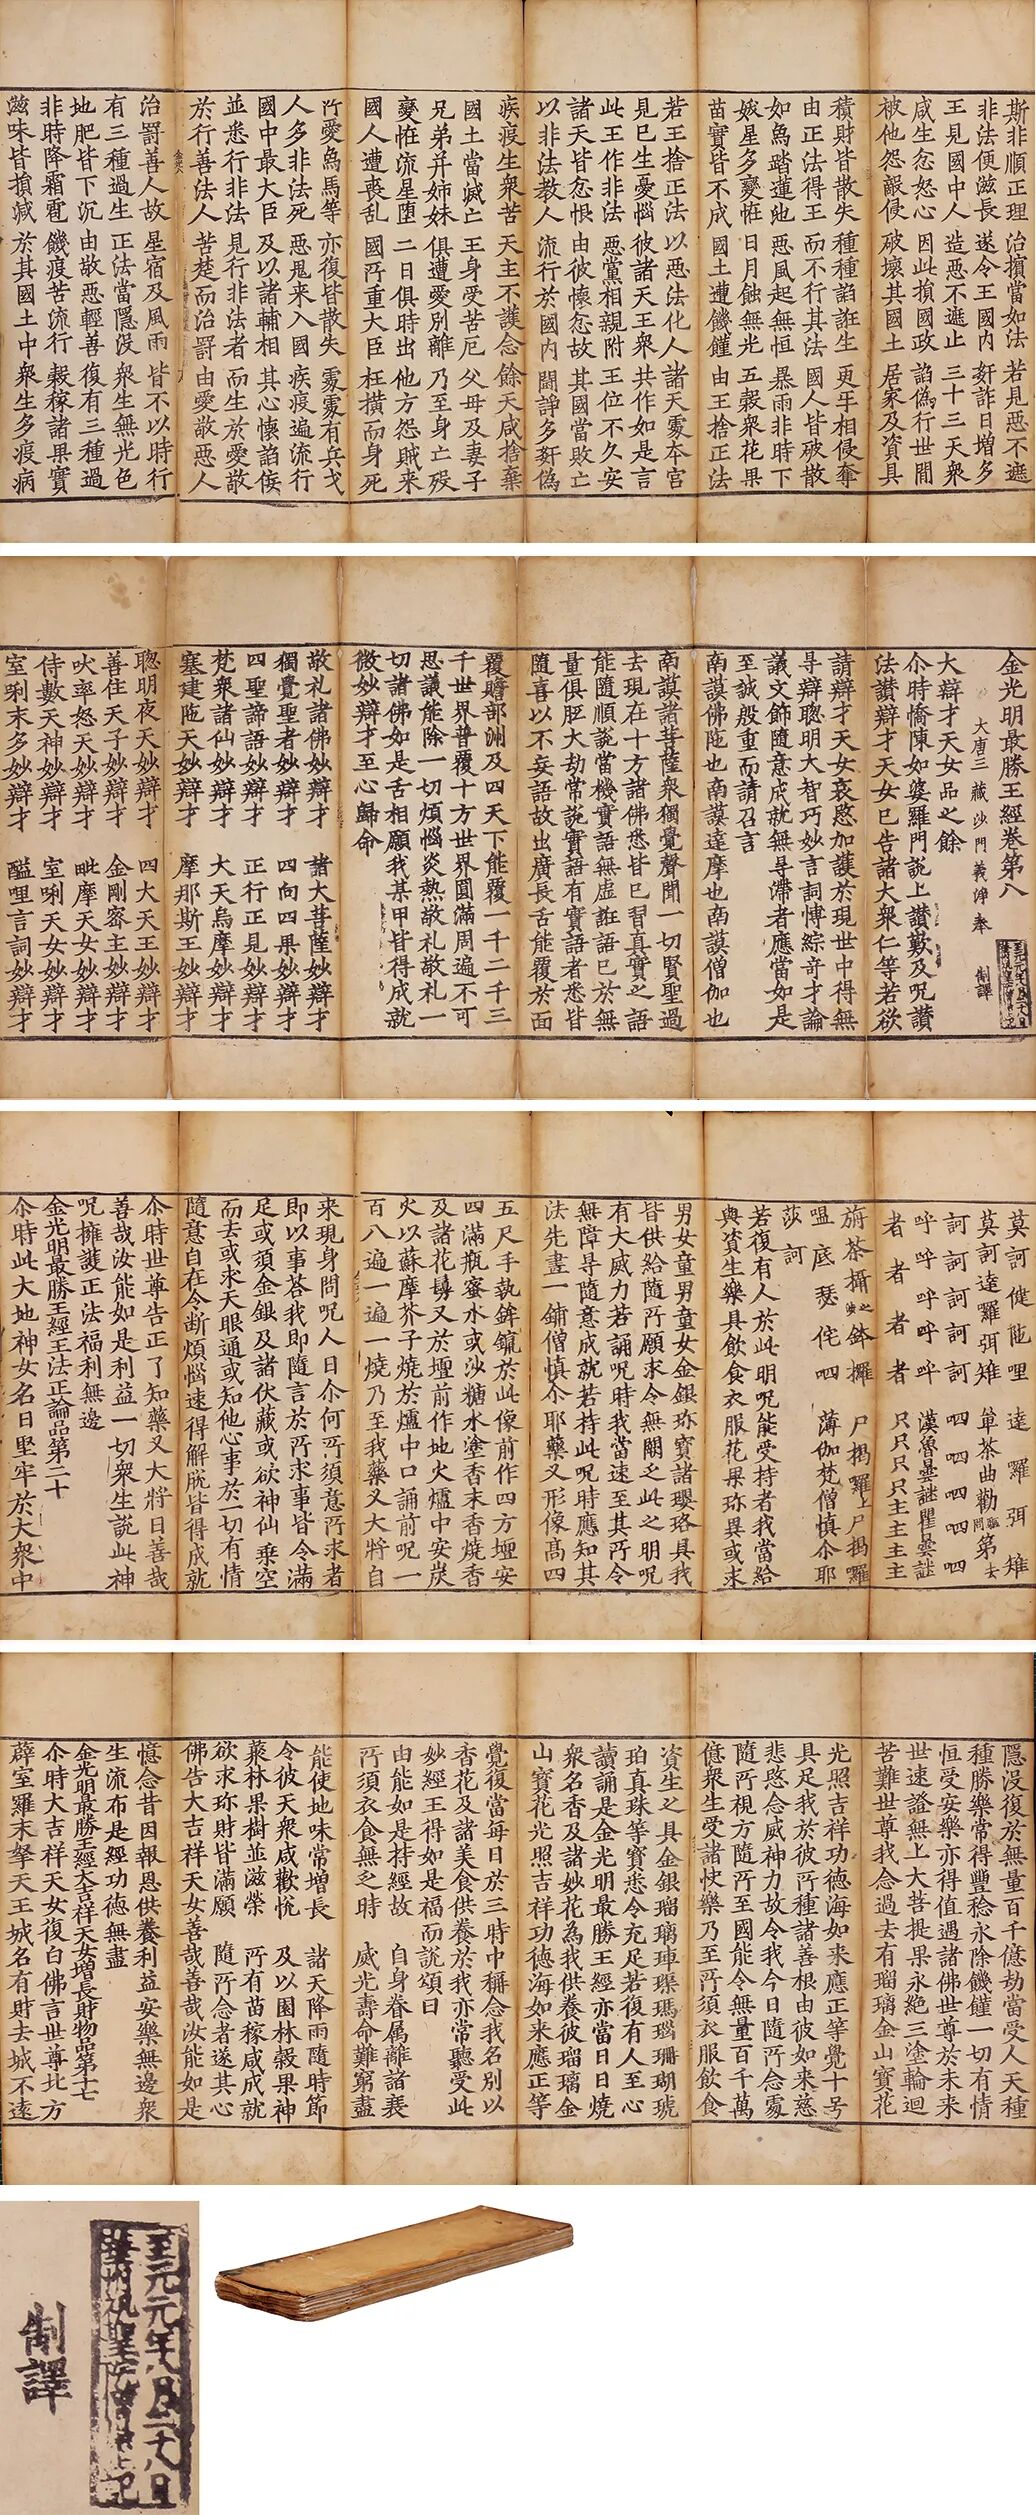 斯非順正理 治擯當如法 若見惡不遮
非法便滋長 遂令王國內 姧詐日增多
王見國中人 造惡不遮止 三十三天衆
咸生忿怒心 因此損國政 諂偽行世間
被他怨敵侵 破壞其國土 居家及資具
積財皆散失 種種諂誑生 更互相侵奪
由正法得王 而不行其法 國人皆破散
如象踏蓮池 惡風起無恒 暴雨非時下
妖星多變恠 日月蝕無光 五穀衆花果
苗實皆不成 國土遭饑饉 由王捨正法
若王捨正法 以惡法化人 諸天處本宮
見已生憂惱 彼諸天王衆 共作如是言
此王作非法 惡黨相親附 王位不久安
諸天皆忿恨 由彼懷忿故 其國當敗亡
以非法教人 流行於國內 鬪諍多姧偽
疾疫生衆苦 天主不護念 餘天咸捨棄
國土當滅亡 王身受苦厄 父母及妻子
兄弟并姉妹 俱遭愛別離 乃至身亡歿
變恠流星墮 二日俱時出 他方怨賊来
國人遭喪亂 國所重大臣 枉橫而身死
所愛象馬等 亦復皆散失 處處有兵戈
人多非法死 惡鬼来入國 疾疫遍流行
國中最大臣 及以諸輔相 其心懷諂佞
並悉行非法 見行非法者 而生於愛敬
於行善法人 苦楚而治罰 由愛敬惡人
治罰善人故 星宿及風雨 皆不以時行
有三種過生 正法當隱沒 衆生無光色
地肥皆下沉 由敬惡輕善 復有三種過
非時降霜雹 饑疫苦流行 穀稼諸果實
滋味皆損減 於其國土中 衆生多疾病
金光明最勝王經卷第八
大唐三藏沙門義淨奉 制譯
至元元年八月二十八日
大辯才天女品之餘
尒時憍陳如婆羅門說上讚歎及呪讚
法讚辯才天女已告諸大衆仁等若欲
請辯才天女哀愍加護於現世中得無
㝵辯聰明大智巧妙言詞博綜奇才論
議文飾隨意成就無㝵滯者應當如是
至誠殷重而請召言
南謨佛陁也南謨達摩也南謨僧伽也
南謨諸菩薩衆獨覺聲聞一切賢聖過
去現在十方諸佛悉皆已習真實之語
能隨順說當機實語無虛誑語已於無
量俱胝大劫常說實語有實語者悉皆
隨喜以不妄語故出廣長舌能覆於面
覆贍部洲及四天下能覆一千二千三
千世界普覆十方世界圓滿周遍不可
思議能除一切煩惱炎熱敬礼敬礼一
切諸佛如是舌相願我某甲皆得成就
微妙辯才至心歸命
敬礼諸佛妙辯才 諸大菩薩妙辯才
獨覺聖者妙辯才 四向四果妙辯才
四聖諦語妙辯才 正行正見妙辯才
梵衆諸仙妙辯才 大天烏摩妙辯才
塞建陁天妙辯才 摩那斯王妙辯才
聰明夜天妙辯才 四大天王妙辯才
善住天子妙辯才 金剛密主妙辯才
吠率怒天妙辯才 毗摩天女妙辯才
侍數天神妙辯才 室唎天女妙辯才
室唎末多妙辯才 醯哩言詞妙辯才
莫訶健陁哩 達羅弭雉
莫訶達羅弭雉 單荼曲勸 第去
訶訶訶訶訶 四四四四四
呼呼呼呼呼 漢魯曇謎瞿曇謎
者者者者者 只只只只主主主主
旃荼攝 鉢攞 尸揭羅上尸揭囉
嗢底瑟侘四 薄伽梵僧慎尒耶
莎訶
若復有人於此明呪能受持者我當給
與資生樂具飲食衣服花果珎異或求
男女童男童女金銀珎寶諸瓔珞具我
皆供給隨所願求令無闕乏此之明呪
有大威力若誦呪時我當速至其所令
無障㝵隨意成就若持此呪時應知其
法先畫一鋪僧慎尒耶藥叉形像高四
五尺手執鉾鑹於此像前作四方壇安
四滿瓶蜜水或沙糖水塗香末香燒香
及諸花鬘又於壇前作地火爐中安炭
火以蘇摩芥子燒於爐中口誦前呪一
百八遍一遍一燒乃至我藥叉大將自
来現身問呪人曰尒何所須意所求者
即以事荅我即隨言於所求事皆令滿
足或須金銀及諸伏藏或欲神仙乘空
而去或求天眼通或知他心事於一切有情
隨意自在令断煩惱速得解脫皆得成就
尒時世尊告正了知藥叉大將曰善哉
善哉汝能如是利益一切衆生說此神
呪擁護正法福利無邊
金光明最勝王經王法正論品第二十
尒時此大地神女名曰堅牢於大衆中
隱沒復於無量百千億劫當受人天種
種勝樂常得豐稔永除饑饉一切有情
恒受安樂亦得值遇諸佛世尊於未来
世速證無上大菩提果永絕三塗輪迴
苦難世尊我念過去有瑠璃金山寶花
光照吉祥功德海如来應正等覺十号
具足我於彼所種諸善根由彼如来慈
悲愍念威神力故令我今日隨所念處
隨所視方隨所至國能令無量百千萬
億衆生受諸快樂乃至所須衣服飲食
資生之具金銀瑠璃硨磲瑪瑙珊瑚琥
珀真珠等寶悉令充足若復有人至心
讀誦是金光明最勝王經亦當日日燒
衆名香及諸妙花為我供養彼瑠璃金
山寶花光照吉祥功德海如来應正等
覺復當每日於三時中稱念我名別以
香花及諸美食供養於我亦常聽受此
妙經王得如是福而說頌曰
由能如是持經故 自身眷属離諸衰
所須衣食無乏時 威光壽命難窮盡
能使地味常增長 諸天降雨隨時節
令彼天衆咸歡悅 及以園林穀果神
藂林果樹並滋榮 所有苗稼咸成就
欲求珎財皆滿願 隨所念者遂其心
佛告大吉祥天女善哉善哉汝能如是
憶念昔因報恩供養利益安樂無邊衆
生流布是經功德無盡
金光明最勝王經大吉祥天女增長財物品第十七
尒時大吉祥天女復白佛言世尊北方
薜室羅末拏天王城名有財去城不遠
至元元年八月二十八日
制譯